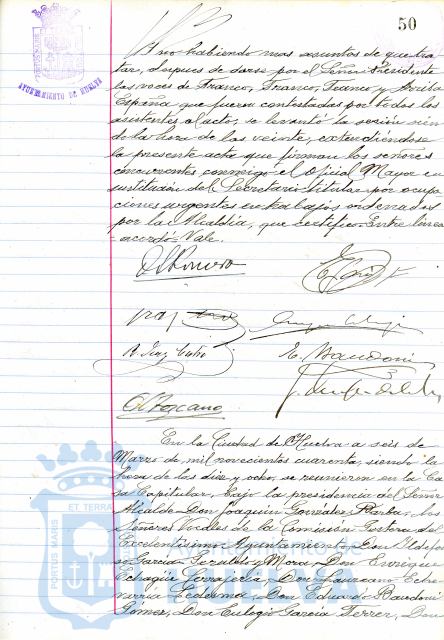 50
AYUNTAMIENTO DE HUELVA
Y no habiendo mas asuntos de que tra
tar, despues de darse por el Señor Presidente
las voces de Franco, Franco, Franco y Arriba
España que fueron contestadas por todos los
asistentes al acto, se levantó la sesión sien
do la hora de las veinte, extendiéndose
la presente acta que firman los señores
concurrentes conmigo el Oficial Mayor en
sustitución del Secretario titular por ocupa
ciones urgentes en trabajos ordenados
por la Alcaldía, que certifico=Entre línea
=acordó=Vale.
E. Baudoni
En la Ciudad de Huelva a seis de
Marzo de mil novecientos cuarenta, siendo la
hora de las diez y ocho, se reunieron en la Ca
sa Capitular, bajo la presidencia del Señor
Alcalde Don Joaquín González Barba, los
Señores Vocales de la Comisión Gestora del
Excelentísimo Ayuntamiento, Don Ildefon
so García Mora, Don Enrique
Echagüe Don Laureano Eche
verría Ledesma, Don Eduardo Baudoni
Gómez, Don Eulogio García Ferrer, Don
PORTUS MARIS
ET TERRAE
Ayuntamiento de
HUELVA